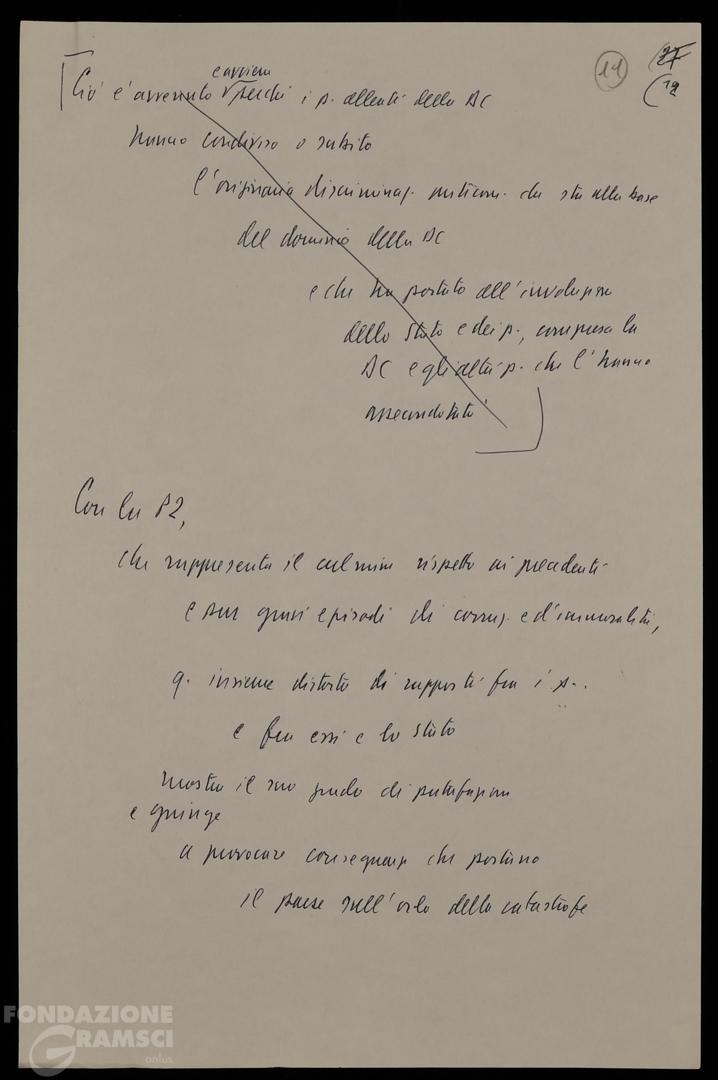 19
27
(19
e avviene
Ciò è avvenuto perché i p. alleati della DC
hanno condiviso o subito
l'originaria discriminaz. anticom. che sta alla base
del dominio della DC
e che ha portato all'involuzione
dello Stato e dei p., compresa la
DC e gli altri p. che l'hanno
assecondata
Con la P2,
che rappresenta il culmine rispetto ai precedenti
e pur gravi episodi di corruz. e d'immoralità,
q. insieme distorto di rapporti fra i p.
e fra essi e lo Stato
mostra il suo grado di putrefazione
e giunge
a provocare conseguenze che portano
il paese sull'orlo della catastrofe
FONDAZIONE
GRAMSCI
onlus